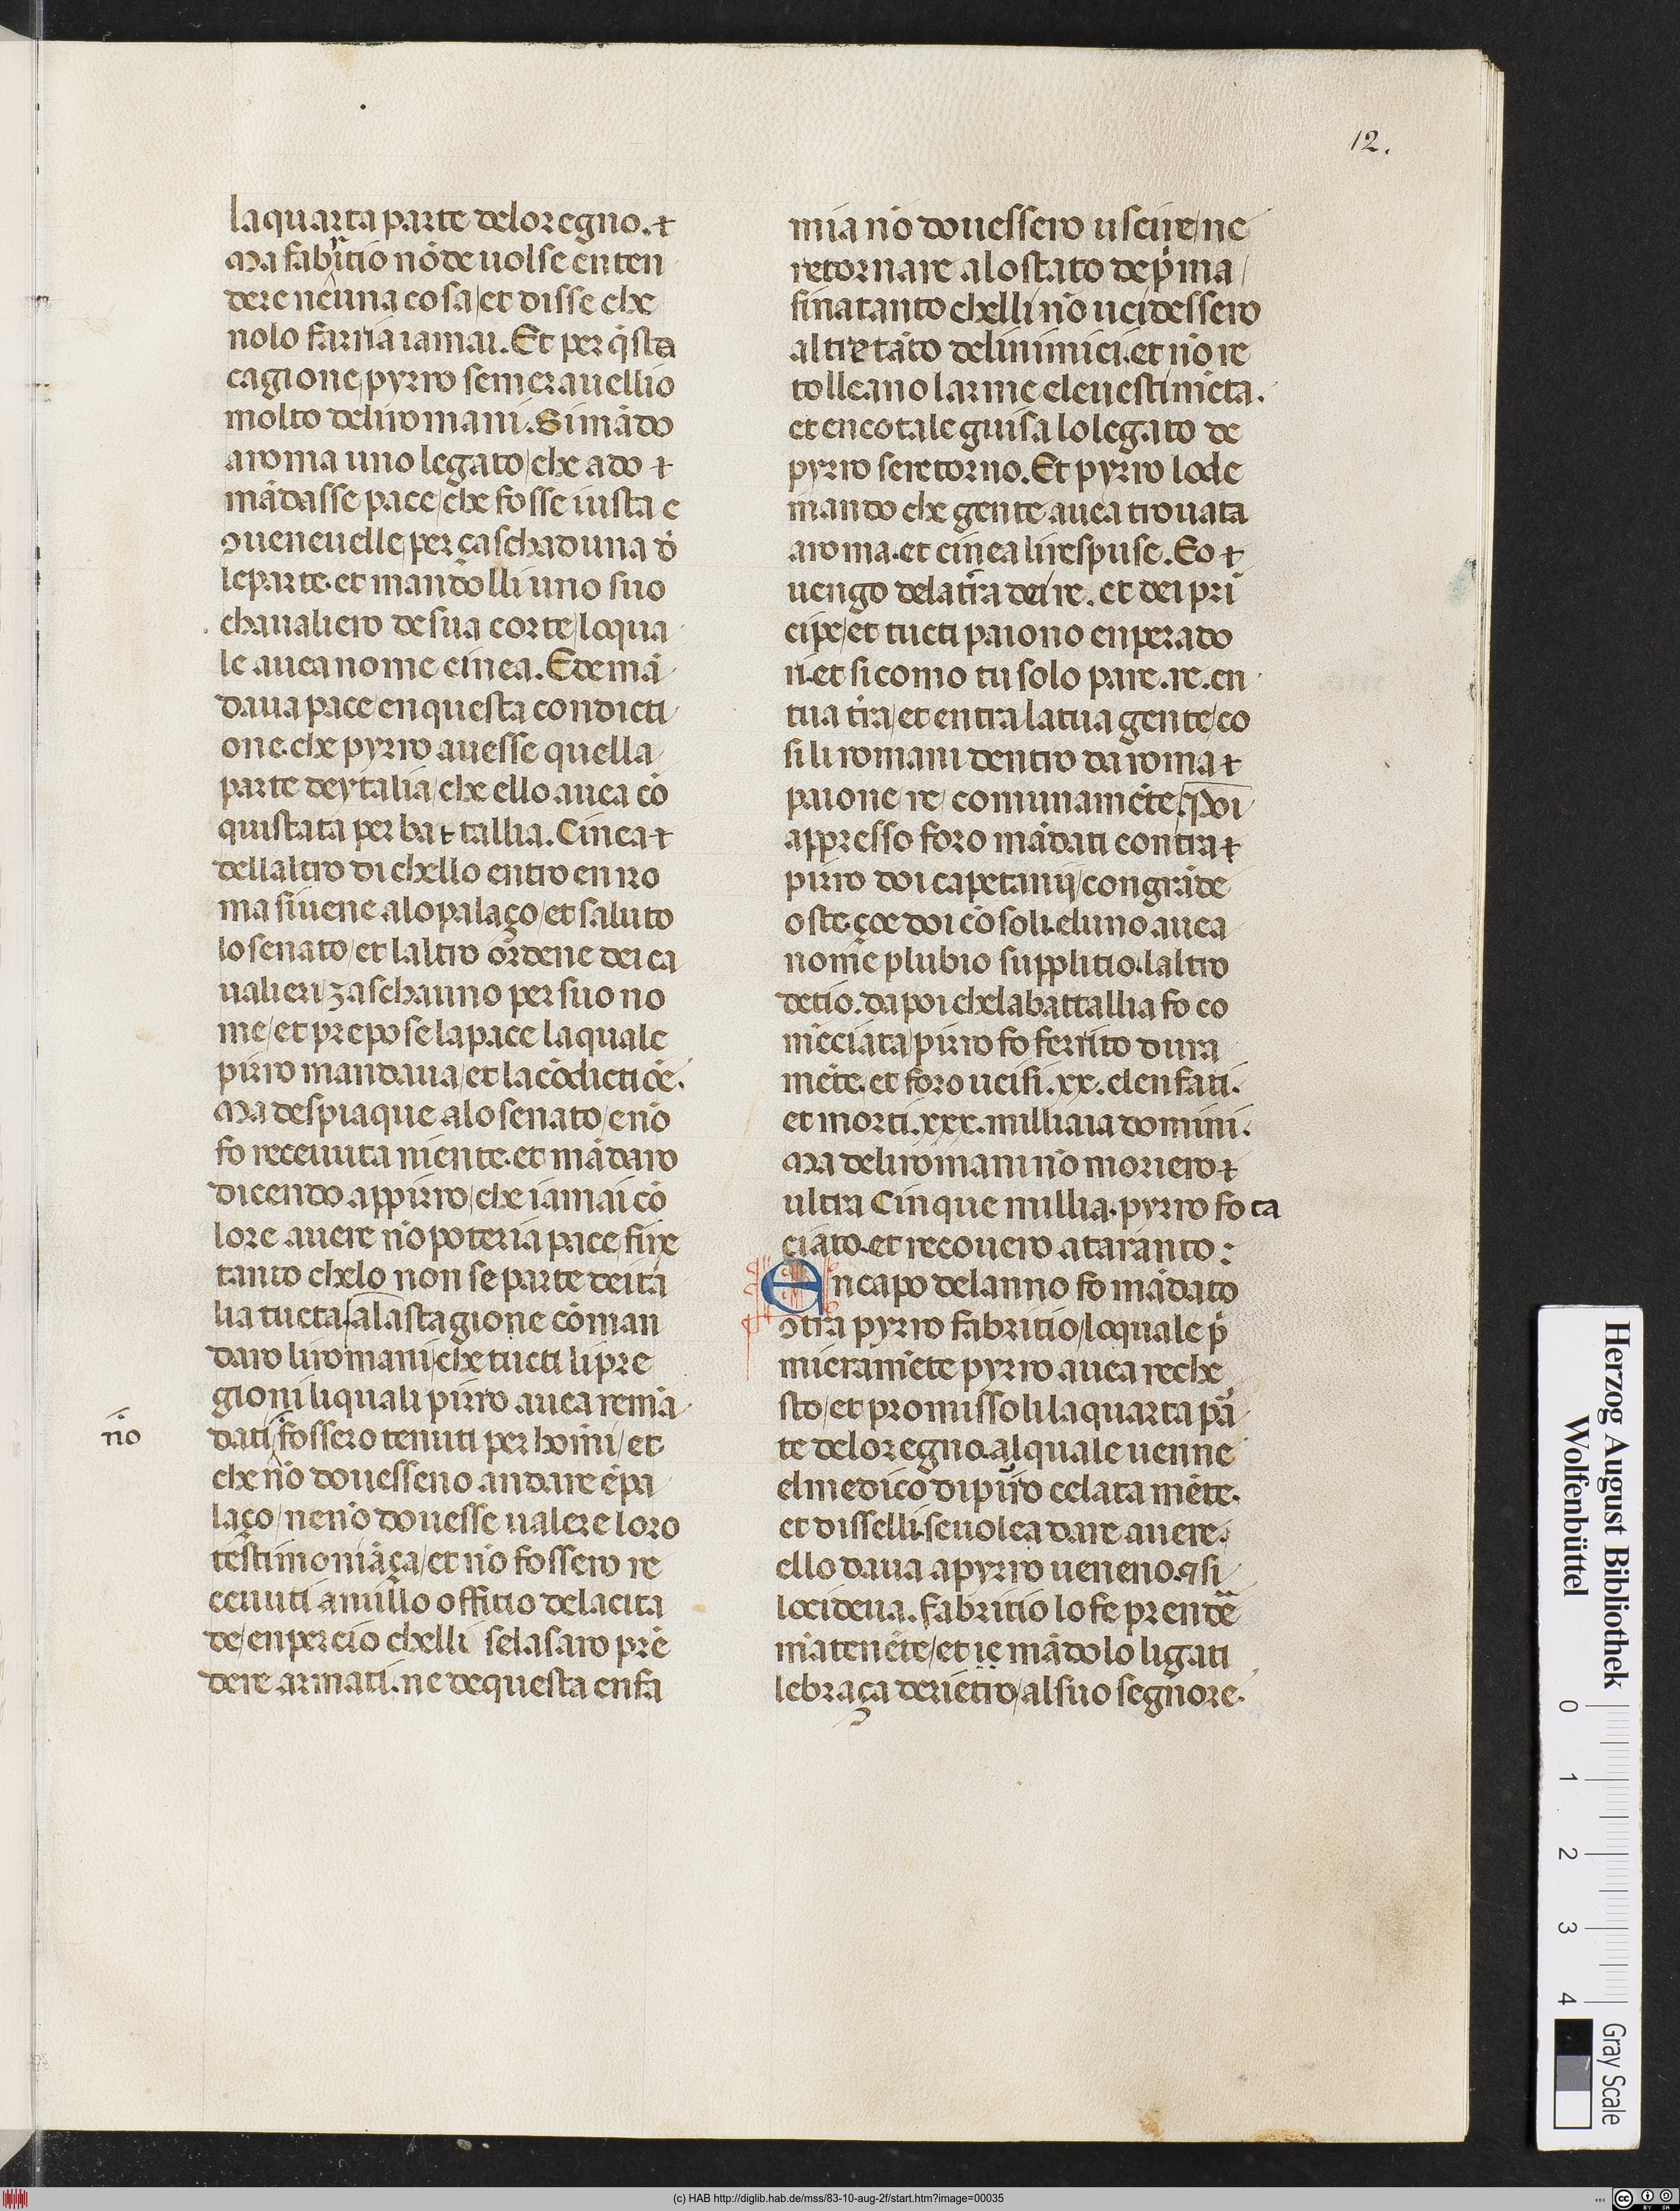 12.
laquarta parte deloregno. ⁊
Ma fabritio nō de uolse enten
dere neūna cosa/et disse che
nolo faria iamai. Et per q̄sta
cagione pyrro semerauellio
molto deliromani. Si mādo
aroma uno legato/che ado ⁊
mādasse pace/che fosse iusta e
ↄueneuelle per çaschaduna d̄
leparte. et mandolli uno suo
chaualiero de sua corte/loqua
le auea nome cinea. Edemā
daua pace en questa condicti
one. che pyrro auesse quella
parte deytalia/che ello auea cō
quistata per battallia. Cinea ⁊
dellaltro di chello entro en ro
ma si uene alo palaço/et saluto
lo senato/et laltro ordene dei ca
ualieri zaschauno per suo no
me/et prepose la pace la quale
pirro mandaua/et la cōdictiōe.
Ma despiaque alo senato/e nō
fo receuuta niente. et mādaro
dicendo appirro/che iamai cō
lore auere nō poteria pace fine
tanto chelo non se parte deita
lia tucta. alastagione cōman
daro li romani/che tucti li pre
gioni li quali pirro auea remā
dati/fossero tenuti per homī/et
nō
che nō douesseno andare ē pa
laço/ne nō douesse ualere loro
testimoniāça/et nō fossero re
ceuuti anullo offitio delacita
de/en percio chelli selasaro prē
dere armati. ne dequesta enfa
mia nō douessero uscire/ne
retornare alo stato de p̄ma
fina tanto chelli nō ucidessero
altretāto delinimici. et nō re
tolleano larme ele uestimēta.
et en cotale guisa lolegato de
pyrro seretorno. Et pyrro lode
mando che gente auea trouata
aroma. et cinea li respuse. Eo ⁊
uengo dela tr̄a dei re. et dei pri
cipe/et tucti paiono enperado
ri. et sicomo tu solo pare .re. en
tua tr̄a/et entra la tua gente/co
si li romani dentro da roma ⁊
paione re comunamēte. Poi
appresso foro mādati contra ⁊
pirro doi capetanij/con grāde
oste. çoe doi cōsoli. eluno auea
nome plubio supplitio. laltro
detio. da poi che la battallia fo co
mēciata/pirro fo ferrito dura
mēte. et foro ucisi .xx. elenfati.
et morti .xxx. milliaia domini.
Ma deli romani nō moriero ⁊
ultra Cinque millia. pyrro fo ca
ciato. et recouero a taranto:
En capo delanno fo mādato
ↄtra pyrro fabritio/loquale p̄
mieramēte pyrro auea reche
sto/et promissoli la quarta pa
te deloregno. al quale uenne
el medico di pirro celatamēte.
et disselli. se uolea dare auere.
ello daua a pyrro ueneno. ⁊ si
locideua. fabritio lo fe prendē
matenēte/et re mādolo ligati
le braça derietro/al suo segnore.
Herzog August Bibliothek
Wolfenbüttel
0 1 2 3 4
Gray Scale
(c) HAB http://diglib.hab.de/mss/83-10-aug-2f/start.htm?image=00035